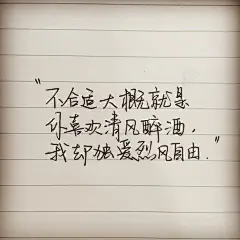 "不合适大概就是
你喜欢清风醉酒，
我却独爱烈风自由."